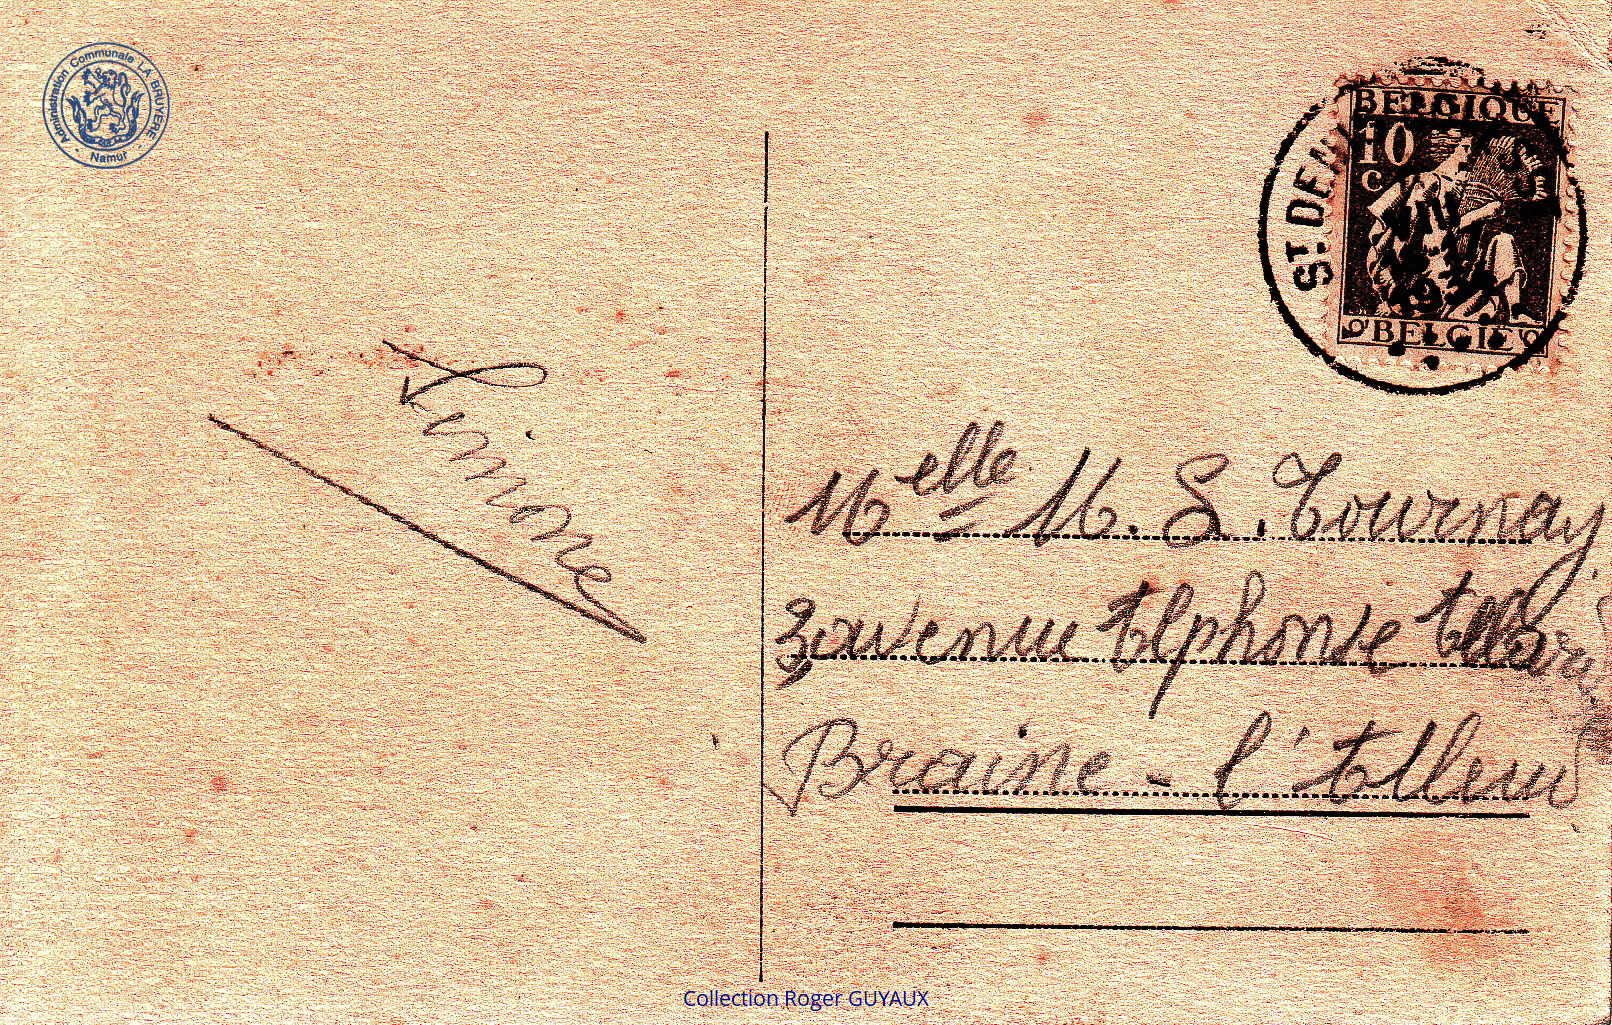 Administration Communale LA BRUYERE - Namur -
BELGIQUE
10
c
BELGIË
ST. DENI
193
Simone
Melle M. S. Tournay
3 avenue Alphonse
Braine-l'Alleud
Collection Roger GUYAUX